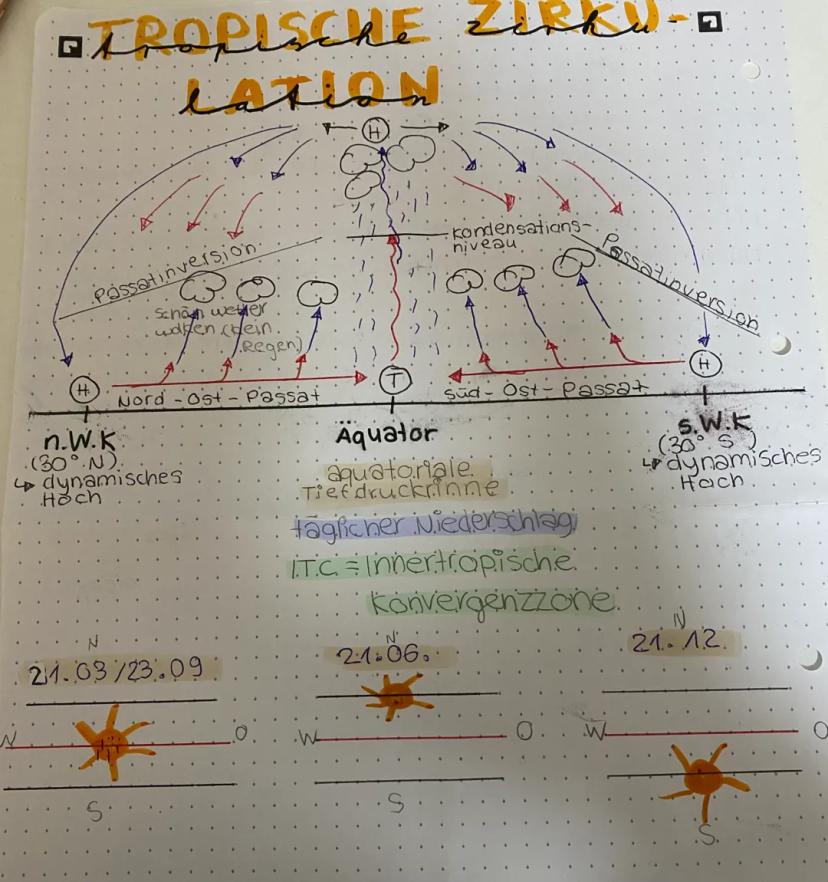 TROPISCHE ZIRKU-
tropische zirku-
LATION
lation
H
Kondensations-
niveau
Passatinversion
Passatinversion
Schönwetter
wolken (kein
Regen)
H
Nord-Ost-Passat
T
Süd-Ost-Passat
H
n.W.K
(30° N)
↳ dynamisches
Hoch
Äquator
s.W.K
(30° S)
↳ dynamisches
Hoch
äquatoriale
Tiefdruckrinne
täglicher Niederschlag
I.T.C = Innertropische
Konvergenzzone
N
21.03/23.09
N
O
S
N
21.06.
W
O
S
N
21.12.
W
O
S